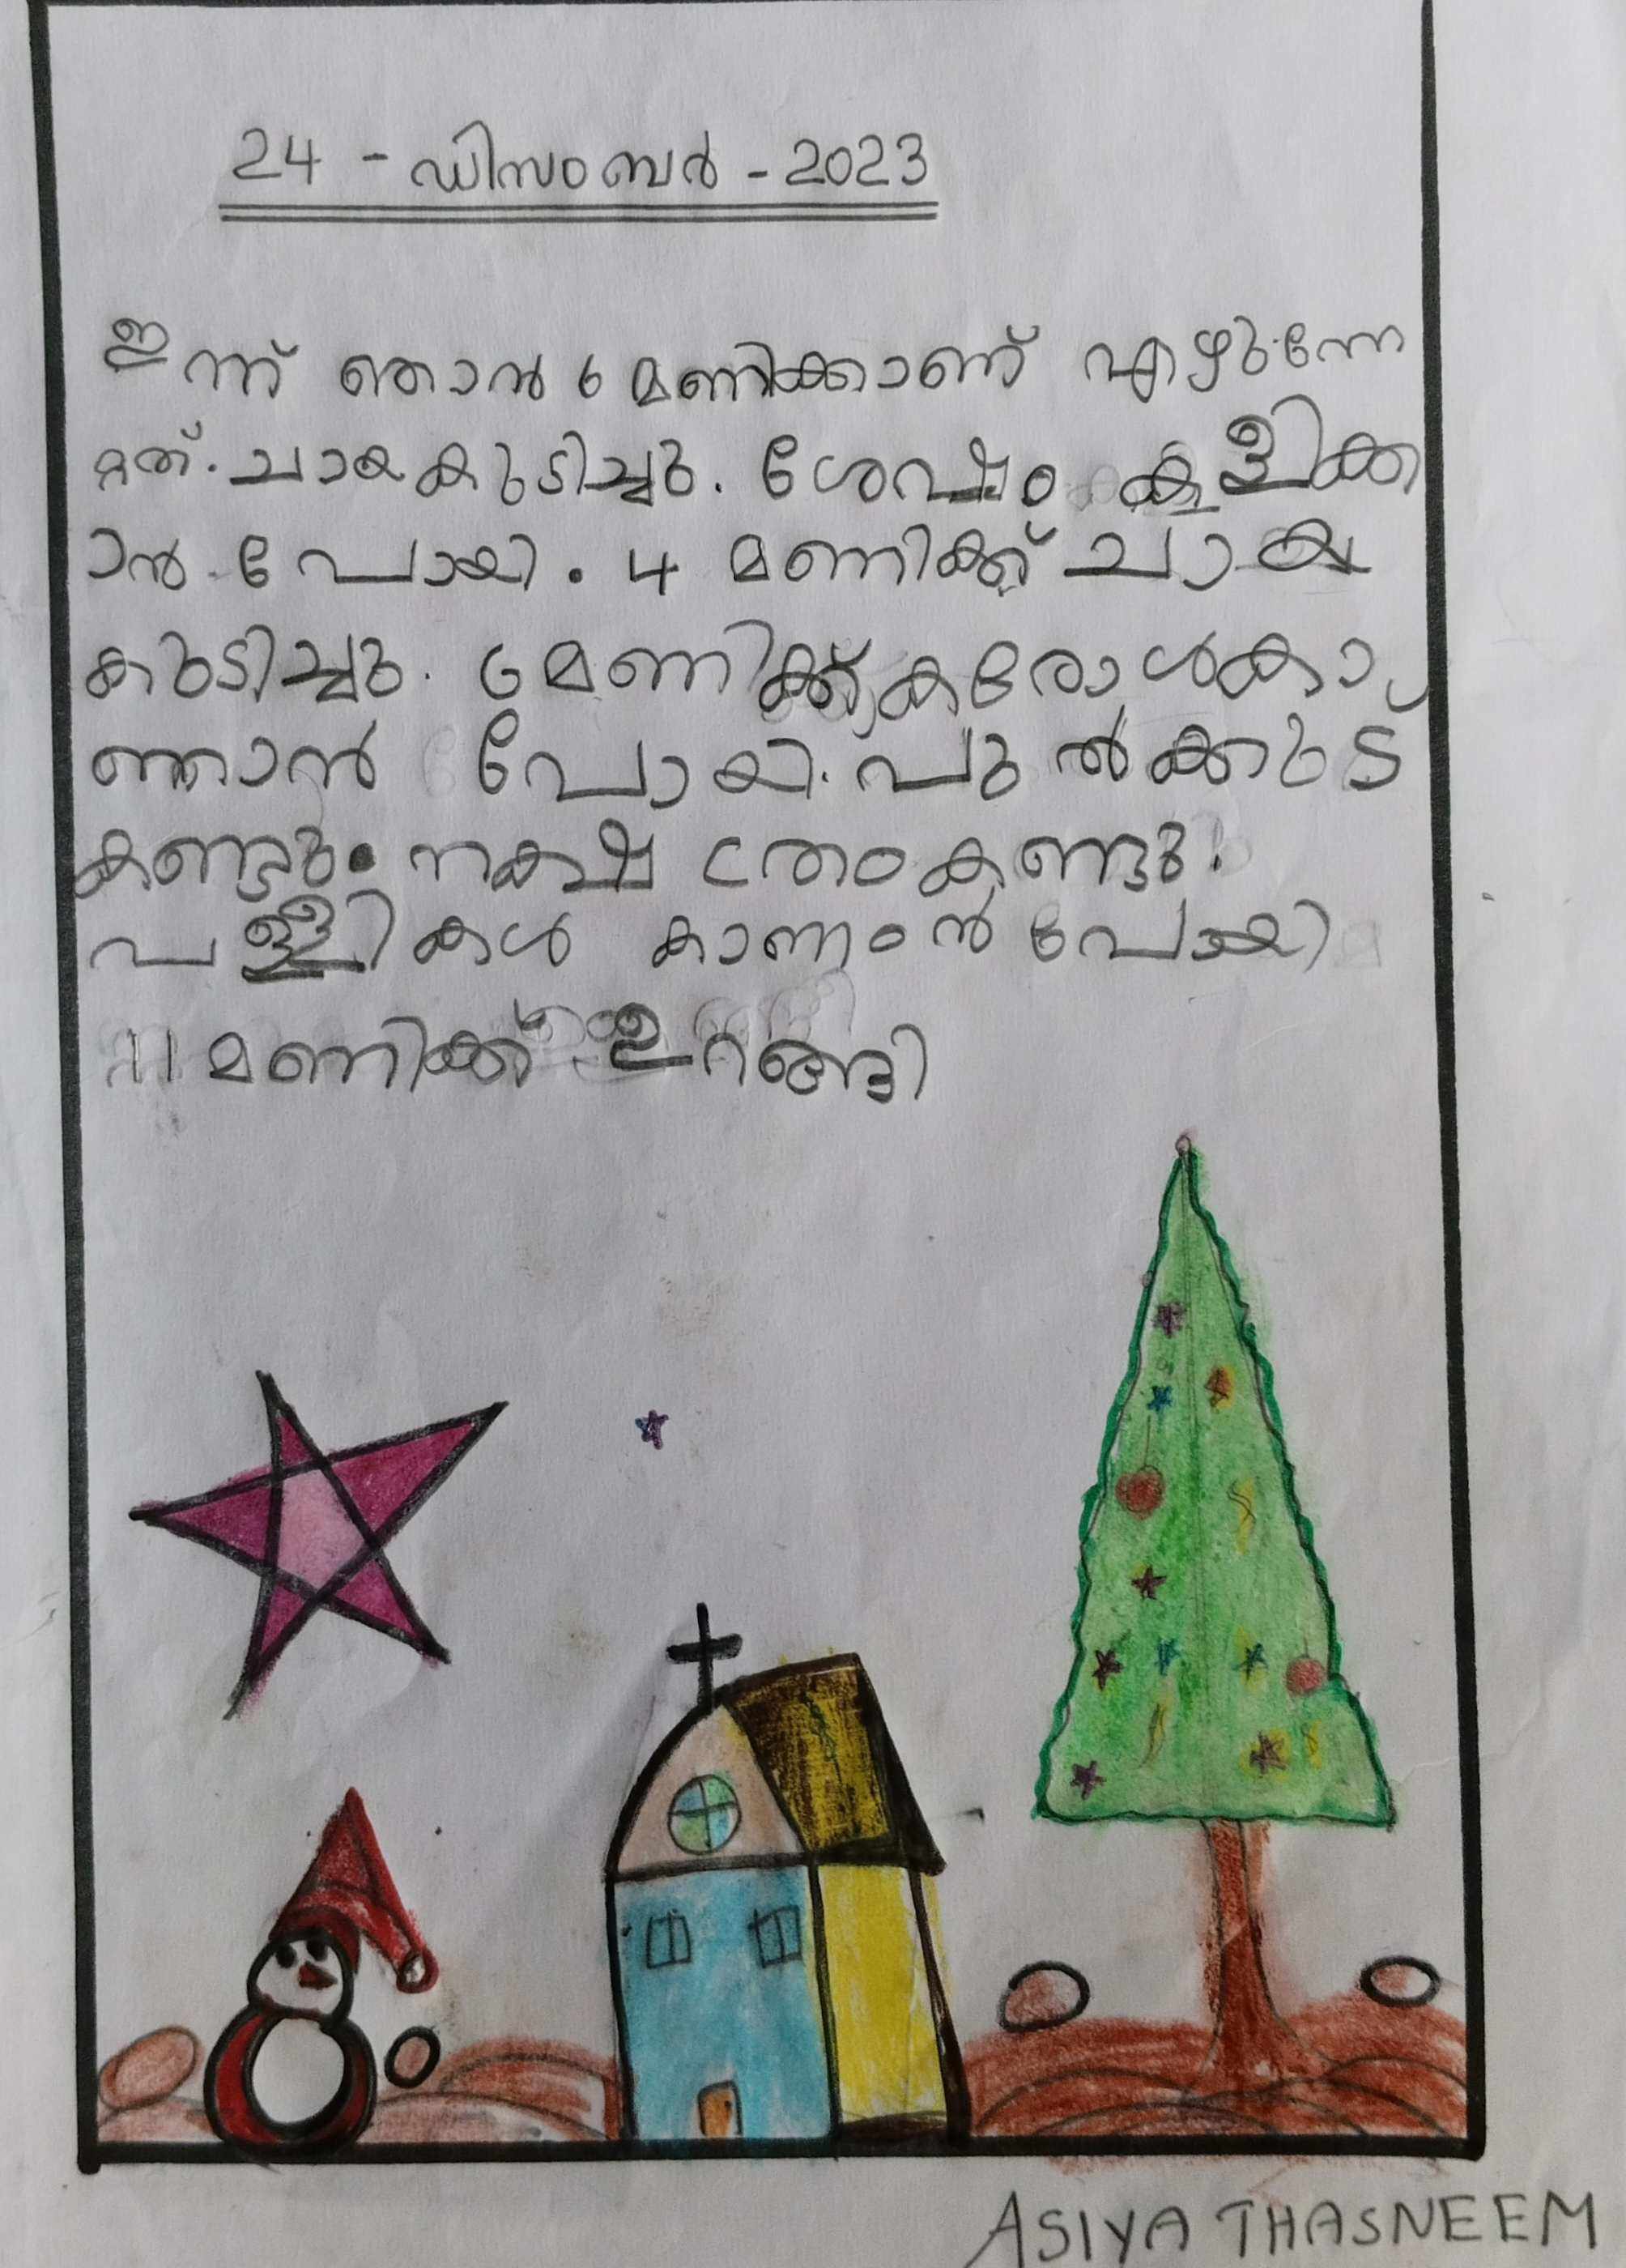 24 - ഡിസംബർ - 2023
ഇന്ന് ഞാൻ 6 മണിക്കാണ് എഴുന്നേ
റ്റത്. ചായകുടിച്ചു. ശേഷം കളിക്ക
ാൻ പോയി. 4 മണിക്ക് ചായ
കുടിച്ചു. 6 മണിക്ക് കരോൾകാ
ഞാൻ പോയി. പുൽക്കുട്
കണ്ടു. നക്ഷത്രംകണ്ടു.
പള്ളികൾ കാണാൻ പോയി
11 മണിക്ക് ഉറങ്ങി
ASIYA THASNEEM